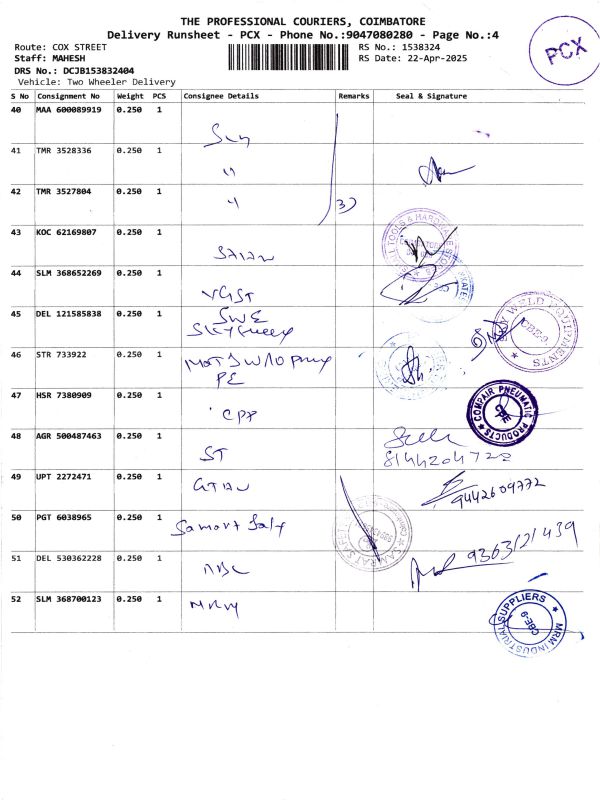 THE PROFESSIONAL COURIERS, COIMBATORE
Delivery Runsheet - PCX - Phone No.:9047080280 - Page No.:4
Route: COX STREET
Staff: MAHESH
DRS No.: DCJB153832404
Vehicle: Two Wheeler Delivery
RS No.: 1538324
RS Date: 22-Apr-2025
PCX
S No Consignment No Weight PCS Consignee Details Remarks Seal & Signature
40 MAA 600089919 0.250 1
41 TMR 3528336 0.250 1 "
42 TMR 3527804 0.250 1 " 3)
43 KOC 62169807 0.250 1
44 SLM 368652269 0.250 1 VGST
45 DEL 121585838 0.250 1 SWE
46 STR 733922 0.250 1
PE
47 HSR 7380909 0.250 1 CPP
COMPAIR PNEUMATIC PRODUCTS
48 AGR 500487463 0.250 1 ST
8144204722
49 UPT 2272471 0.250 1
9442609772
50 PGT 6038965 0.250 1
51 DEL 530362228 0.250 1 ABC
9363121439
52 SLM 368700123 0.250 1
MRM INDUSTRIAL SUPPLIERS
CBE-9